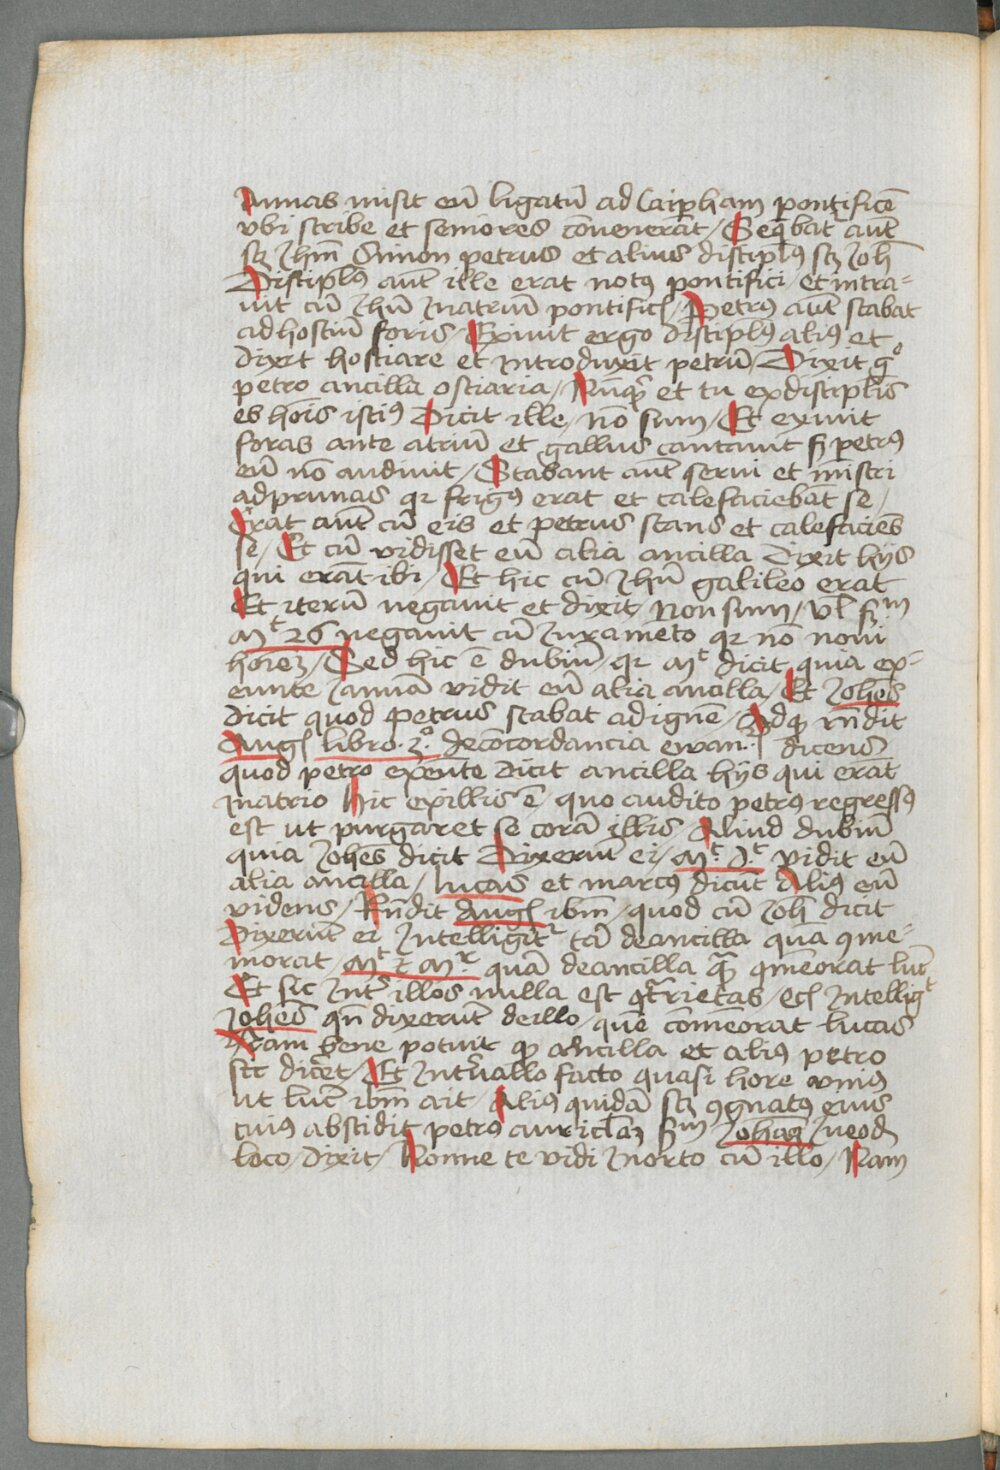 Annas misit eu᷑ ligatū ad Caipham pontificē
vbi scribe et seniores cōvenerāt / Seq̄bat aūt
sꝫ Jhm̄ Simon petrus et alius discipl̄9 sꝫ Joh̄
Discipl̄9 aūt ille erat not9 pontifici / et intra-
uit cū Jhū in atriū pontificis / Petr9 aūt stabat
ad hostiū foris / Exiuit ergo discipl̄9 ali9 et
dixit hostiare et introduxit petrū / Dixit gͦ
petro ancilla ostiaria / Nūqͥd et tu ex discipl̄is
es hōis isti9 Dicit ille / nō sum / Et exiuit
foras ante atriū et gallus cantauit sꝫ petr9
eū nō audiuit / Stabant aūt serui et mīstri
ad prunas qr frig9 erat et calefaciebāt se /
Erat aūt cū eis et petrus stans et calefaciēs
se / Et cū vidisset eū alia ancilla dixit hijs
qui erāt ibi / Et hic cū Jhū galileo erat
Et iterū negauit et dixit Non sum / vl̄ sꝫm
Mt 26 negauit cū Juramēto qr nō noui
hoīeꝫ / Sed hic ē dubiū qr Mt dicit quia ex-
eunte Januā vidit eū alia ancilla / Et Johēs
dicit quod petrus stabat ad ignē / Ad qd̄ rn̄dit
Aug9 libro 3ͦ de cōcordancia ewan. dicens
quod petro exeunte dicit ancilla hijs qui erāt
in atrio Hic ex illis ē / quo audito petr9 regress9
est ut purgaret se corā illis Aliud dubiū
quia Johēs dicit Dixerūt ei / Mt dt vidit eū
alia ancilla / lucas et marc9 dicūt Ali9 eū
videns / Rn̄dit Aug9 ibm̄ / quod cū Joh̄ dicit
Dixerūt ei Intelligitr tā de ancilla quā 9me-
morat Mt ⁊ Mr quā de ancilla quā 9meorat luc̄
Et sic Int illos nulla est 9trarietas / Intelligit
Johēs qn̄ dixerūt de illo quē cōmeorat lucas
Nam bene potuit qd̄ ancilla et ali9 petro
sic dic̄et / Et Intuallo facto quasi hore vni9
ut luc̄ ibm̄ ait / Ali9 quidā sꝫ 9gnat9 eius
cui9 abscidit petr9 auriclaꝫ sꝫm Johan̄ In eod̄
loco / dixit / Nonne te vidi in orto cū illo / Nam